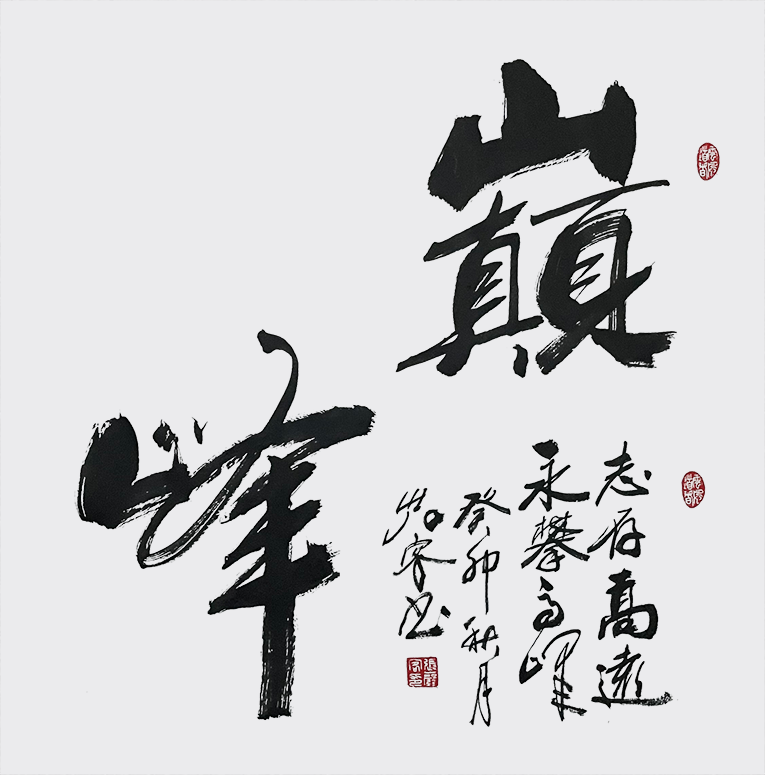 巅
峰
志存高远
永攀高峰
癸卯秋月